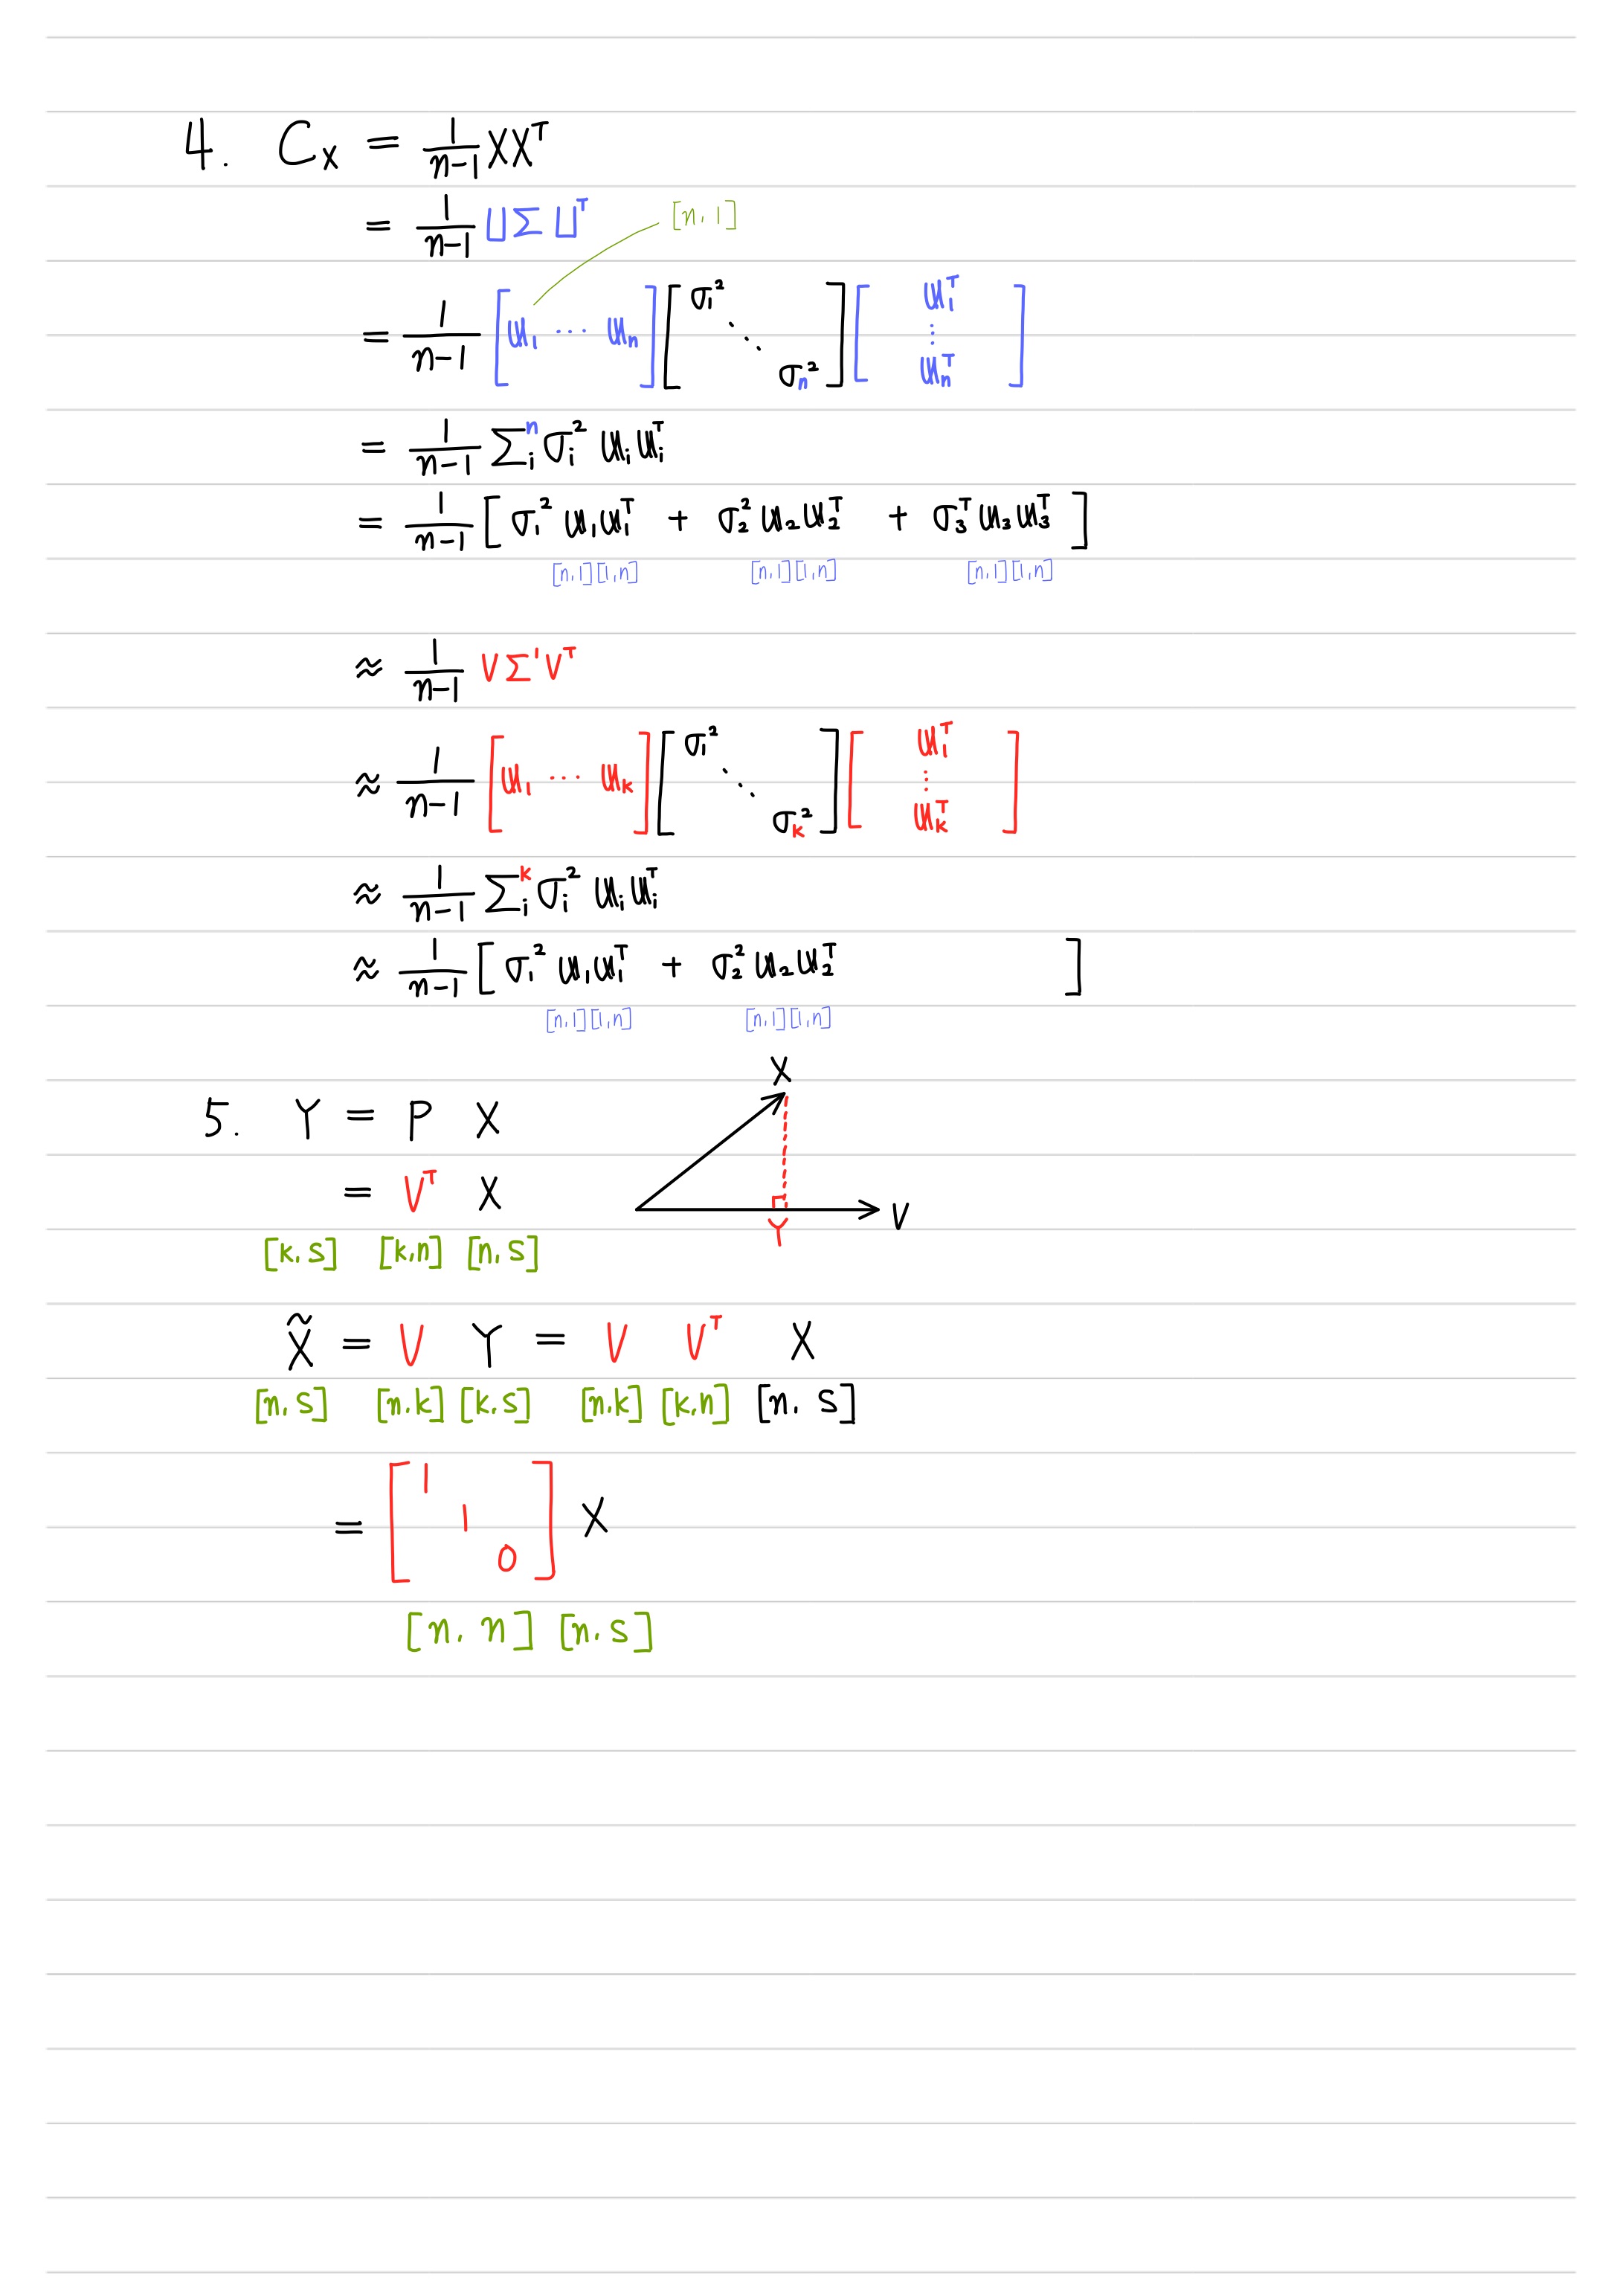 4. Cₓ = 1/(n-1) XXᵀ
= 1/(n-1) UΣUᵀ [n,1]
= 1/(n-1) [u₁ ⋯ uₙ] [σ₁² ⋱ σₙ²] [u₁ᵀ ⋮ uₙᵀ]
= 1/(n-1) Σᵢⁿ σᵢ² uᵢuᵢᵀ
= 1/(n-1) [σ₁² u₁u₁ᵀ + σ₂² u₂u₂ᵀ + σ₃ᵀ u₃u₃ᵀ]
[n,1][1,n] [n,1][1,n] [n,1][1,n]
≈ 1/(n-1) VΣ'Vᵀ
≈ 1/(n-1) [u₁ ⋯ uₖ] [σ₁² ⋱ σₖ²] [u₁ᵀ ⋮ uₖᵀ]
≈ 1/(n-1) Σᵢᵏ σᵢ² uᵢuᵢᵀ
≈ 1/(n-1) [σ₁² u₁u₁ᵀ + σ₂² u₂u₂ᵀ ]
[n,1][1,n] [n,1][1,n]
X
5. Y = P X
= Vᵀ X
V
Y
[k,s] [k,n] [n,s]
X̃ = V Y = V Vᵀ X
[n,s] [n,k] [k,s] [n,k] [k,n] [n,s]
= [1 1 0] X
[n,n] [n,s]